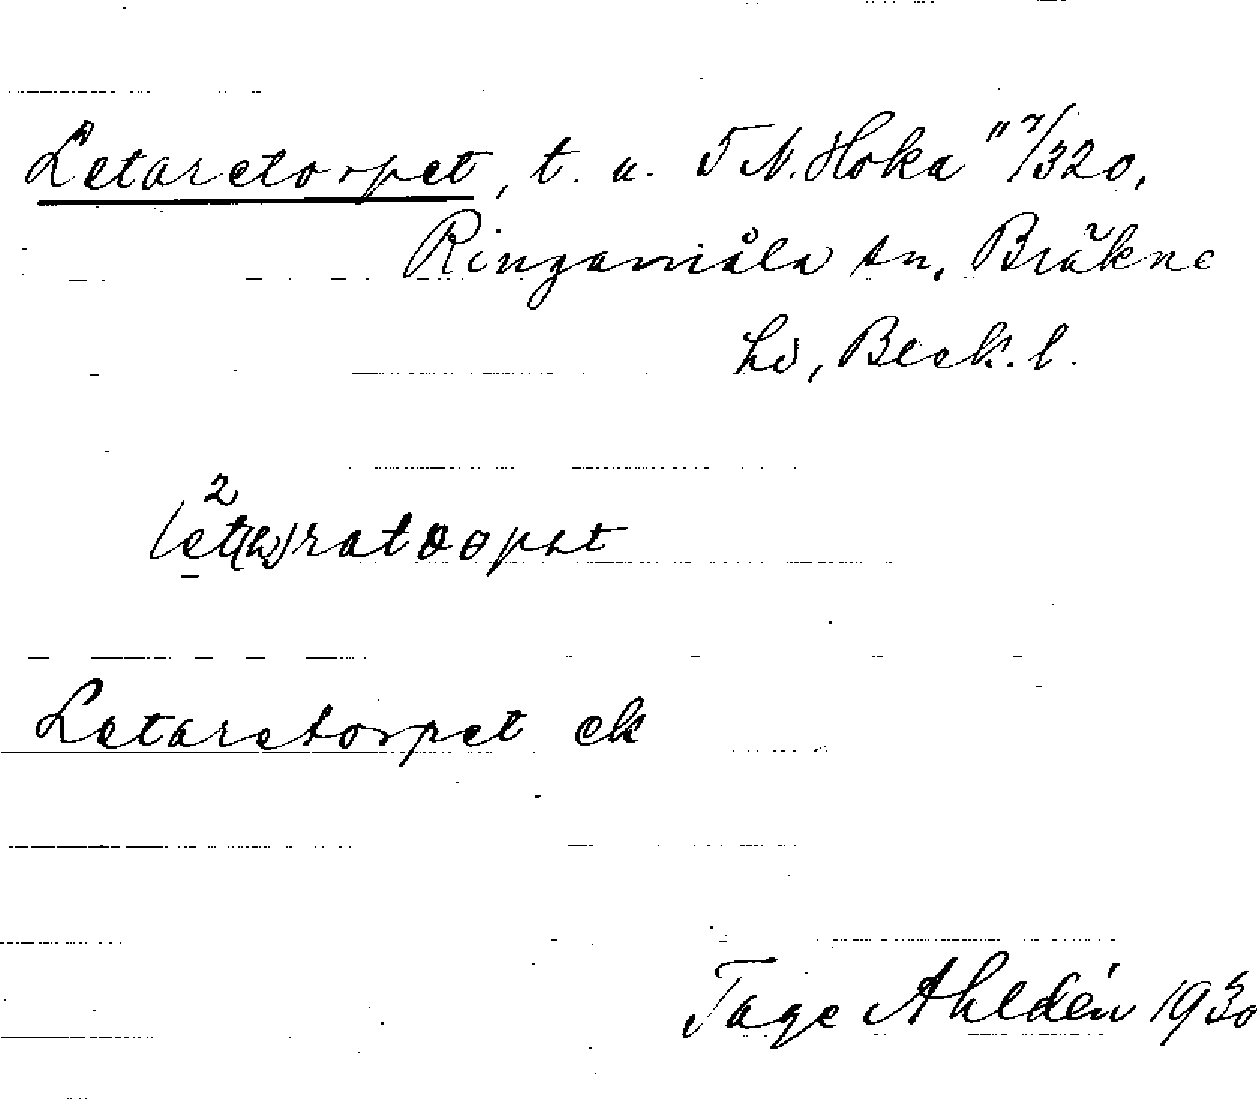 Letaretorpet, t. u. 5 N. Hoka " 7/320,
Ringamåla sn, Bräkne
hd, Blek. l.
2
let(a)ratoorpet
Letaretorpet ek
Tage Ahldén 1930